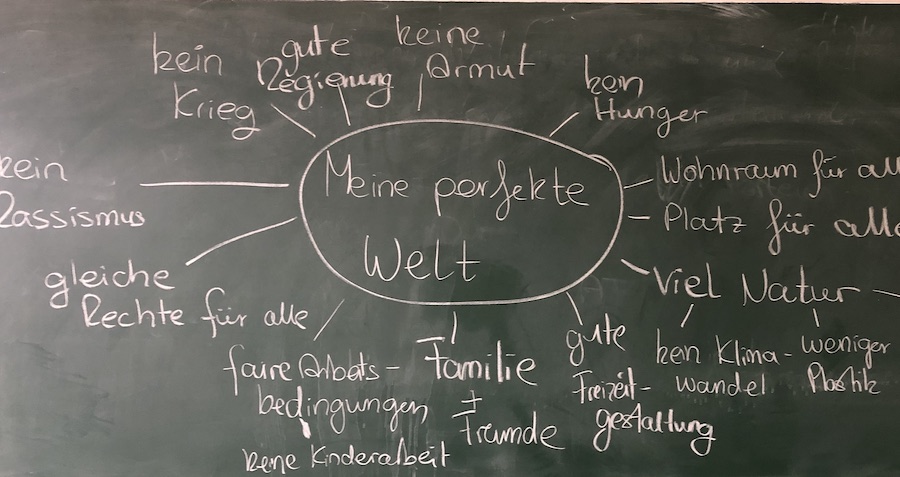 kein
Krieg
gute
Regierung
keine
Armut
kein
Hunger
kein
Rassismus
Meine perfekte
Welt
Wohnraum für all
Platz für alle
gleiche
Rechte für alle
Viel Natur
faire Arbeits-
bedingungen
keine Kinderarbeit
Familie
+
Freunde
gute
Freizeit-
gestaltung
kein Klima-
wandel
weniger
Plastik